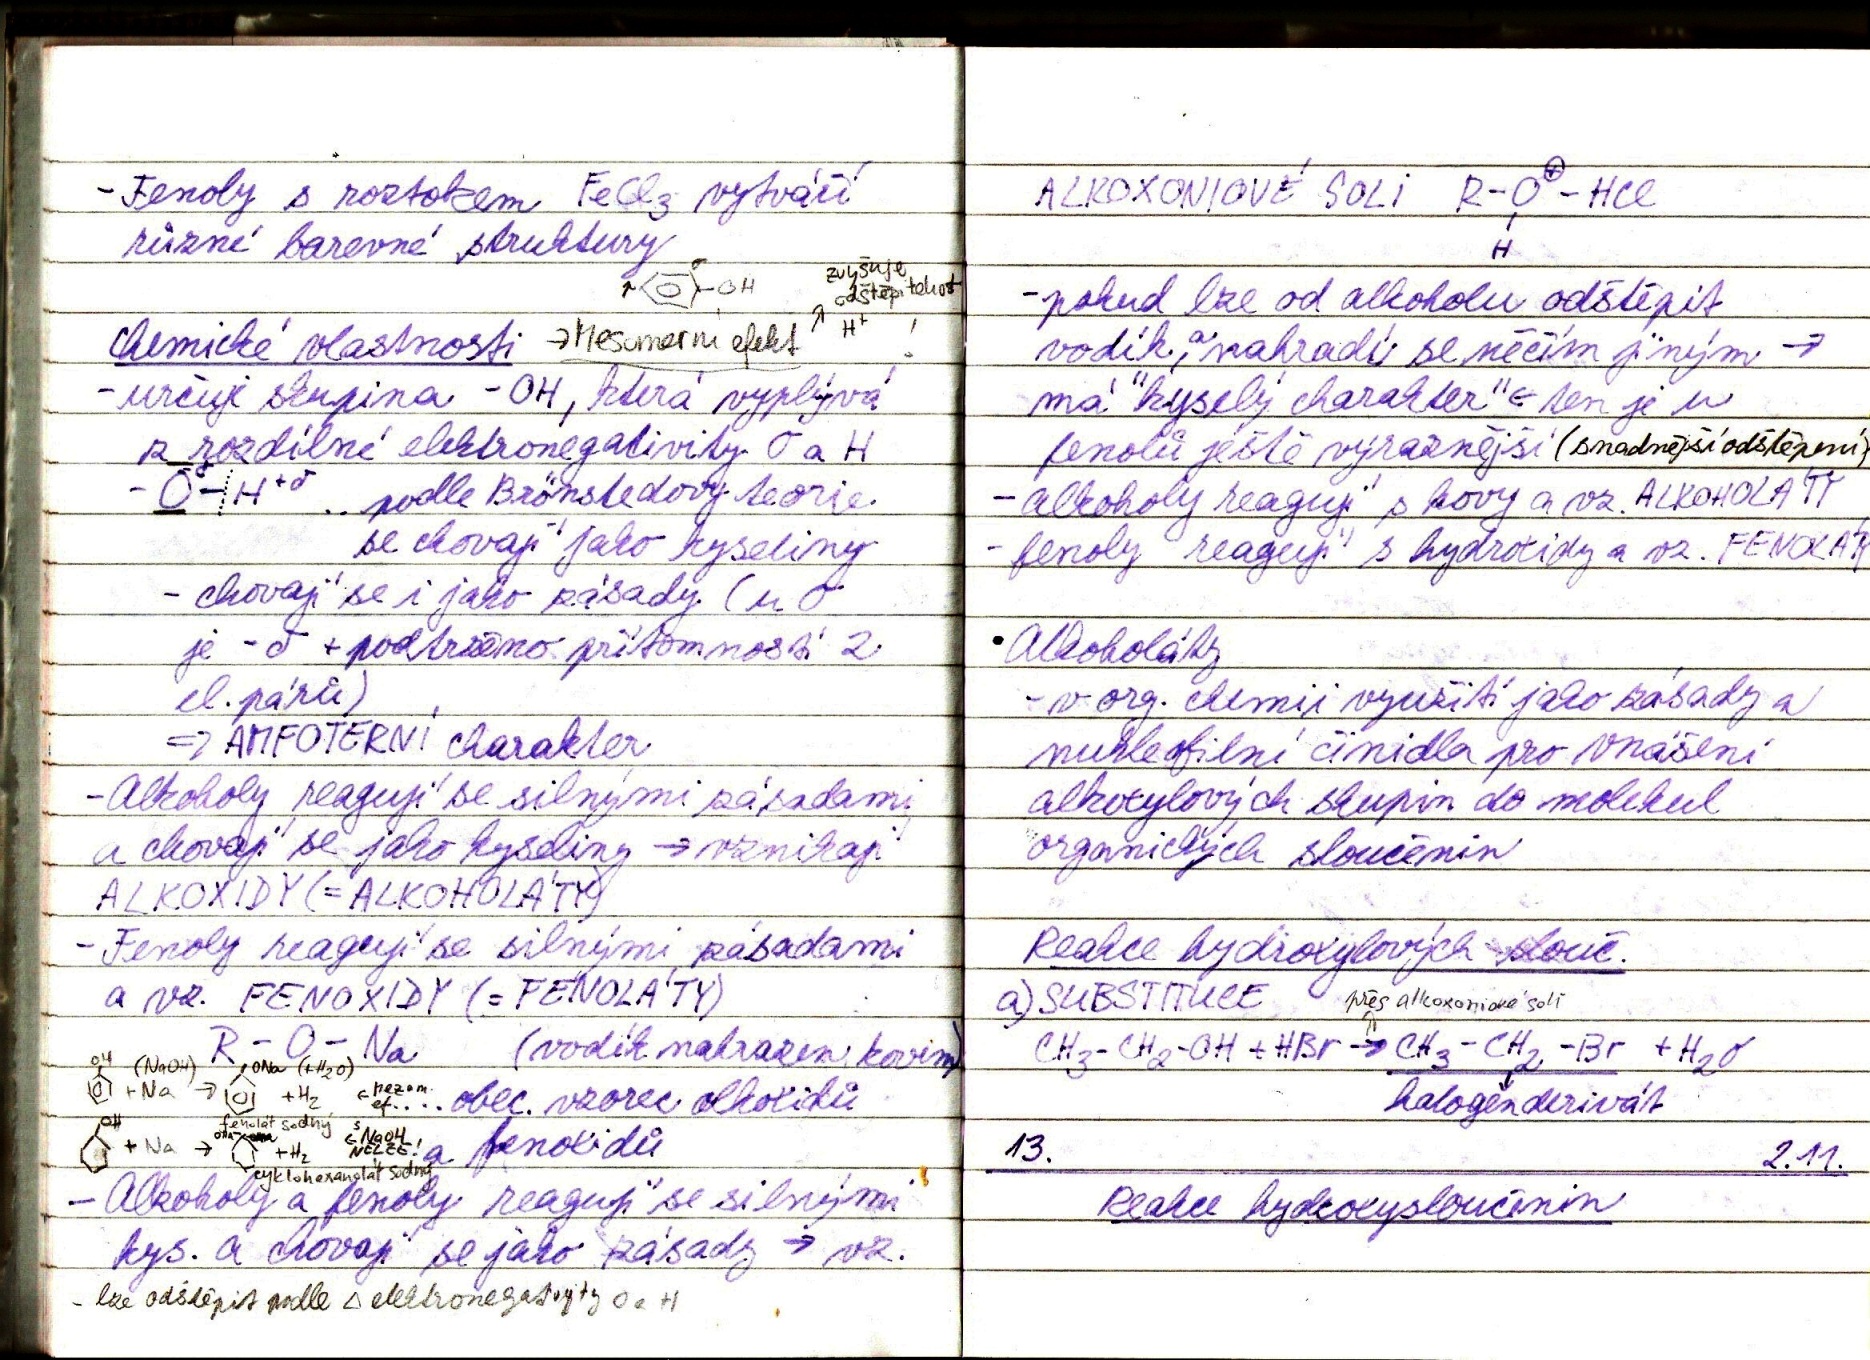 - Fenoly s roztokem FeCl3 vytváří
různé barevné struktury
-OH
zvyšuje
odštěpitelnost
H+ !
Chemické vlastnosti → Mesomerní efekt
- určuje skupina -OH, která vyplývá
z rozdílné elektronegativity O a H
- O-δ - H+δ ... podle Brönstedovy teorie
se chovají jako kyseliny
- chovají se i jako zásady (u O
je -δ + podtrženo přítomností 2
el. párů)
=> AMFOTERNÍ charakter
- Alkoholy reagují se silnými zásadami
a chovají se jako kyseliny → vznikají
ALKOXIDY (= ALKOHOLÁTY)
- Fenoly reagují se silnými zásadami
a vz. FENOXIDY (= FENOLÁTY)
R - O - Na (vodík nahrazen kovem)
OH (NaOH) ONa (+H2O)
+ Na → + H2
.... obec. vzorec alkoxidů
fenolát sodný
OH + Na → ONa + H2 ← s NaOH NELZE! a fenoxidů
cyklohexanolát sodný
- Alkoholy a fenoly reagují se silnými
kys. a chovají se jako zásady → vz.
- lze odštěpit podle Δ elektronegativity O a H
ALKOXONIOVÉ SOLI R - O⊕ - HCl
H
- pokud lze od alkoholu odštěpit
vodík, a nahradí se něčím jiným →
má "kyselý charakter" ← ten je u
fenolů ještě výraznější (snadnější odštěpení)
- alkoholy reagují s kovy a vz. ALKOHOLÁTY
- fenoly reagují s hydroxidy a vz. FENOLÁTY
• Alkoholáty
- v org. chemii využití jako zásady a
nukleofilní činidla pro vnášení
alkoxylových skupin do molekul
organických sloučenin
Reakce hydroxylových slouč.
a) SUBSTITUCE přes alkoxoniové soli
CH3 - CH2 - OH + HBr → CH3 - CH2 - Br + H2O
halogenderivát
13. 2.11.
Reakce hydroxysloučenin